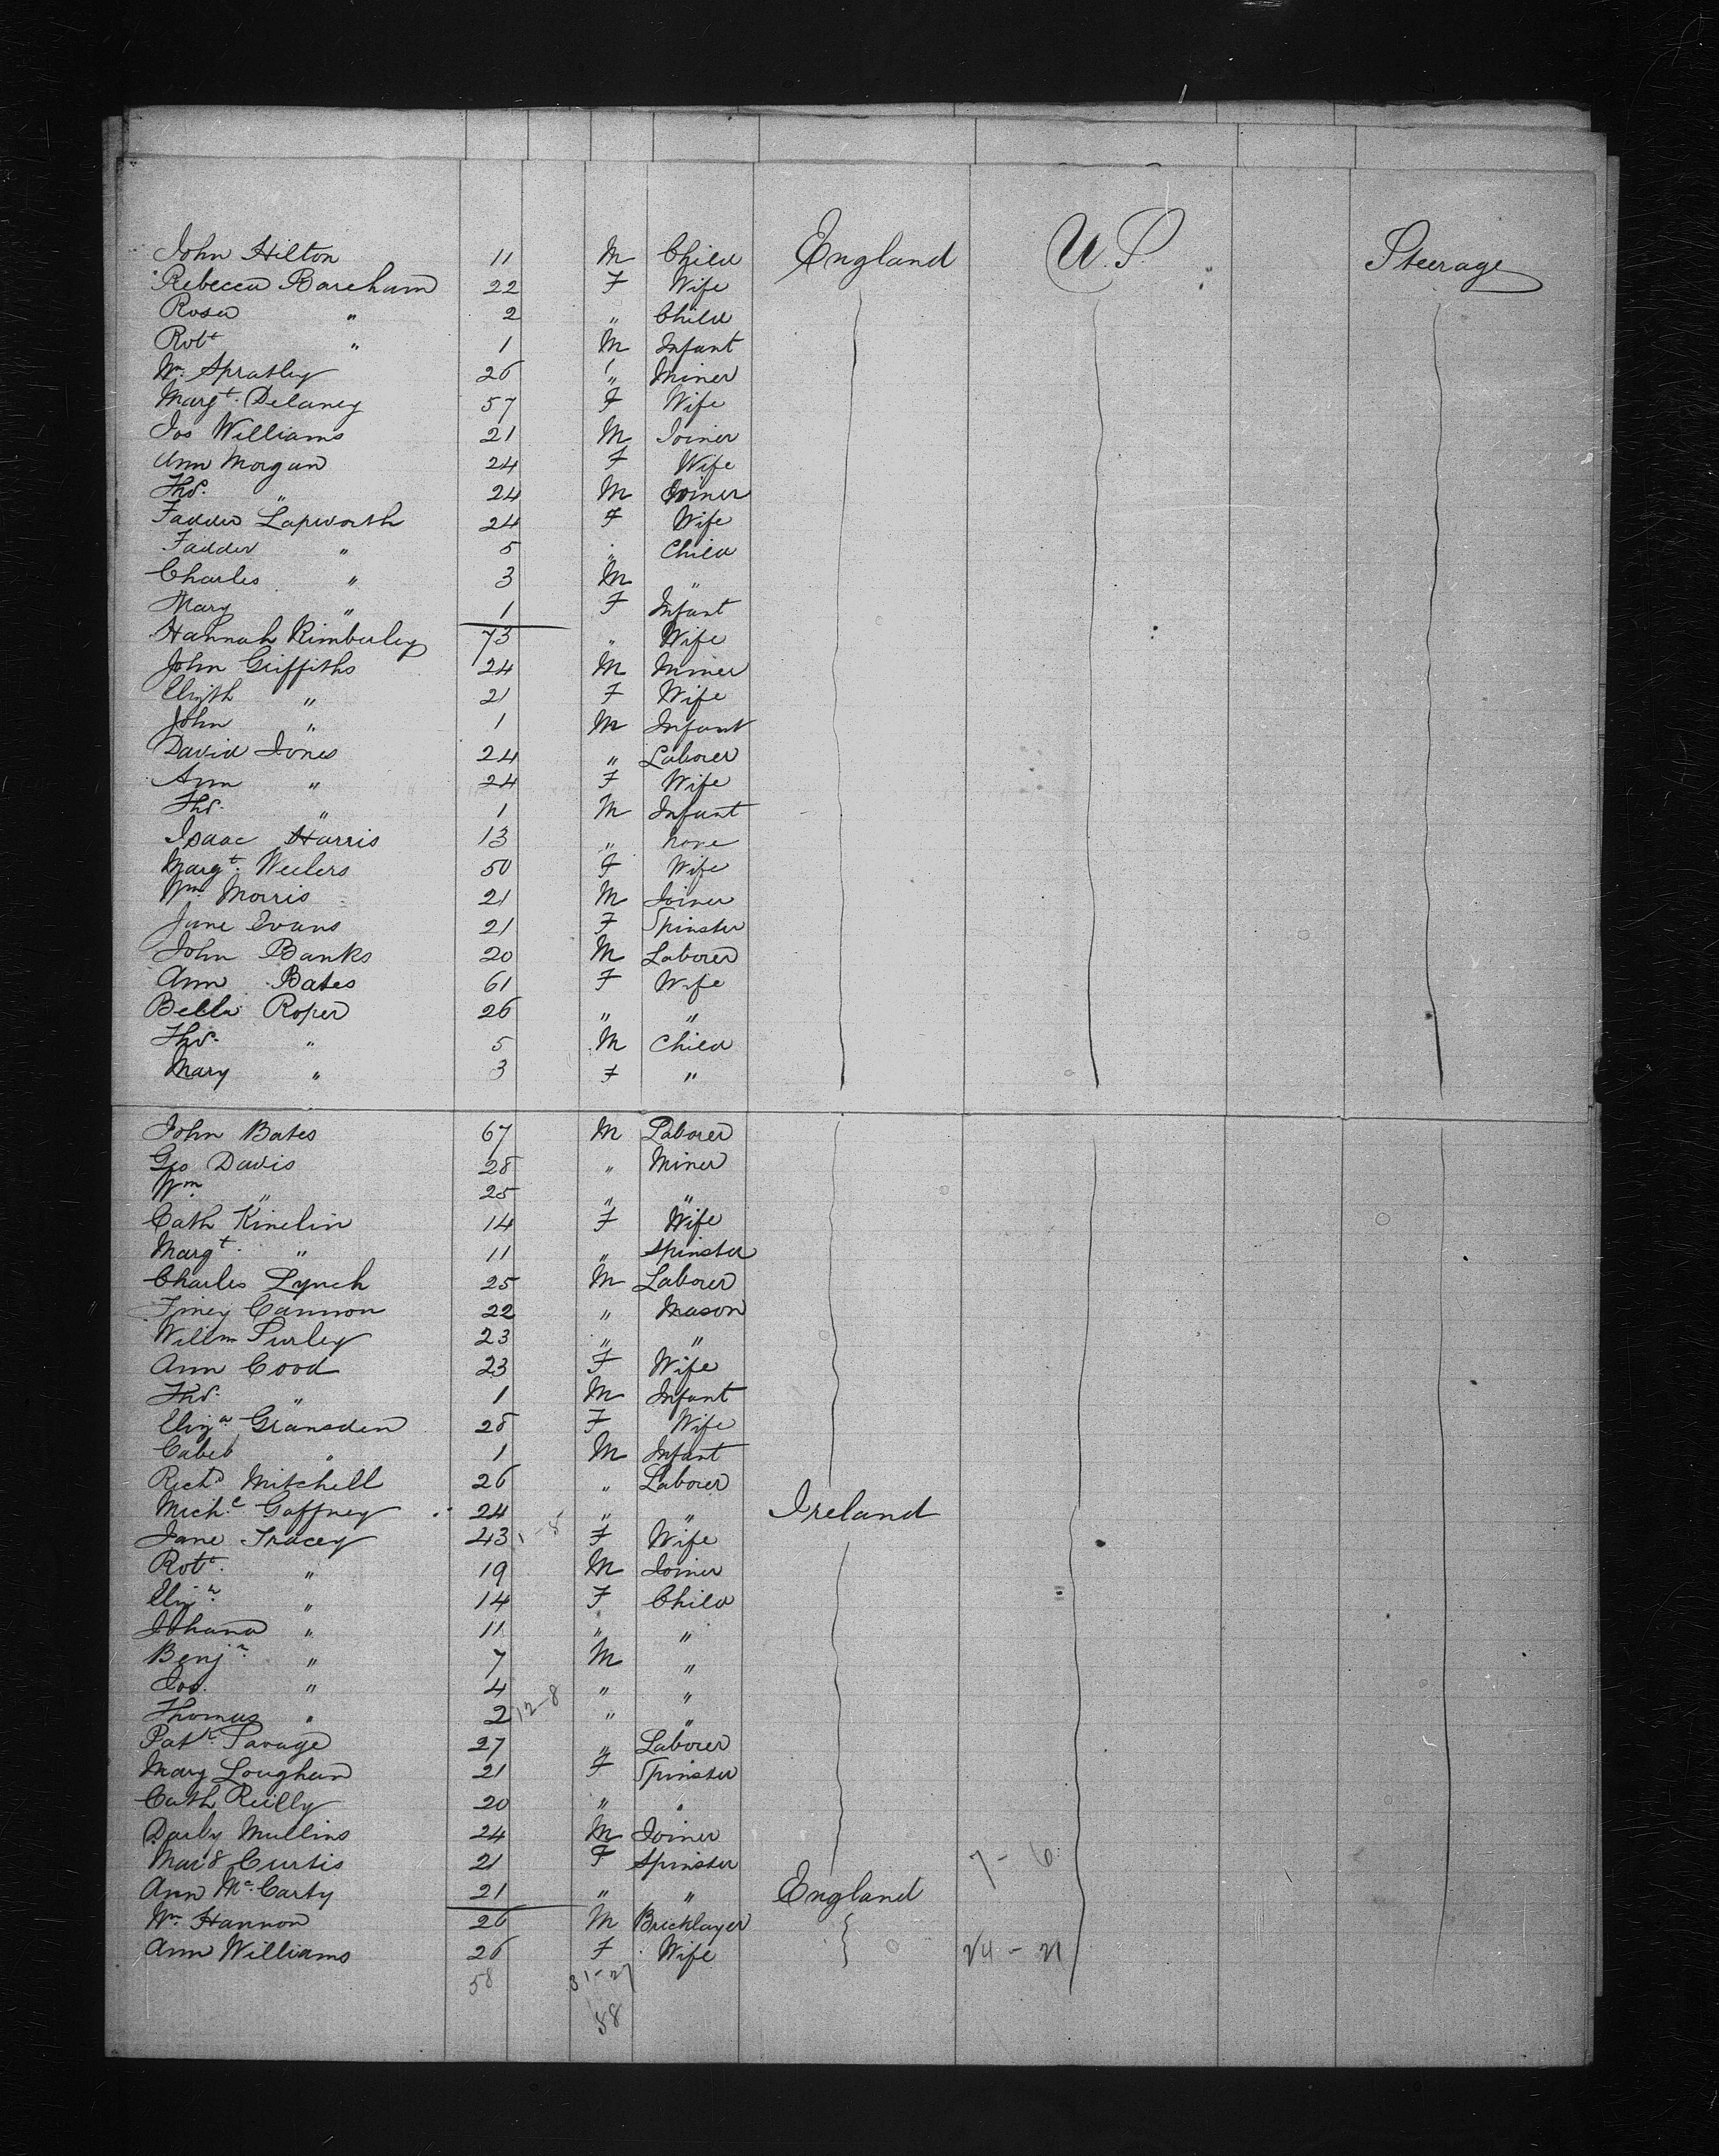 John Hilton 11 M Child England U.S. Steerage
Rebecca Bareham 22 F Wife
Rosa " 2 " Child
Robt " 1 M Infant
Wm. Spratley 26 " Miner
Margt. Delaney 57 F Wife
Jos Williams 21 M Joiner
Ann Morgan 24 F Wife
Thos. " 24 M Joiner
Lapworth 24 F Wife
" 5 " Child
Charles " 3 M "
Mary " 1 F Infant
Hannah Kimberley 73 " Wife
John Griffiths 24 M Miner
Elizth " 21 F Wife
John " 1 M Infant
David Jones 24 " Laborer
Ann " 24 F Wife
Thos. " 1 M Infant
Isaac Harris 13 " None
Margt. Weelers 50 F Wife
Wm. Morris 21 M Joiner
Jane Evans 21 F Spinster
John Banks 20 M Laborer
Ann Bates 61 F Wife
Bella Roper 26 " "
Thos. " 5 M Child
Mary " 3 F "
John Bates 67 M Laborer
Geo Davis 28 " Miner
Wm " 25 " "
Cath Kinelin 14 F Wife
Margt. " 11 " Spinster
Charles Lynch 25 M Laborer
Cannon 22 " Mason
Willm Purley 23 " "
Ann Cood 23 F Wife
Thos. " 1 M Infant
Eliza Gransden 28 F Wife
Caleb " 1 M Infant
Richd Mitchell 26 " Laborer
Michl. Gaffney 24 " " Ireland
Jane Tracey 43 1-5 F Wife
Robt. " 19 M Joiner
Eliza. " 14 F Child
Johana " 11 " "
Benjn. " 7 M "
Jos. " 4 " "
Thomas " 2 12-8 " "
Patk. Savage 27 " Laborer
Mary Loughan 21 F Spinster
Cath Reilly 20 " "
Darby Mullins 24 M Joiner
Curtis 21 F Spinster 7-6
Ann McCarty 21 " " England
Wm. Hannon 26 M Bricklayer
Ann Williams 26 F Wife 24-21
58 31-27
58